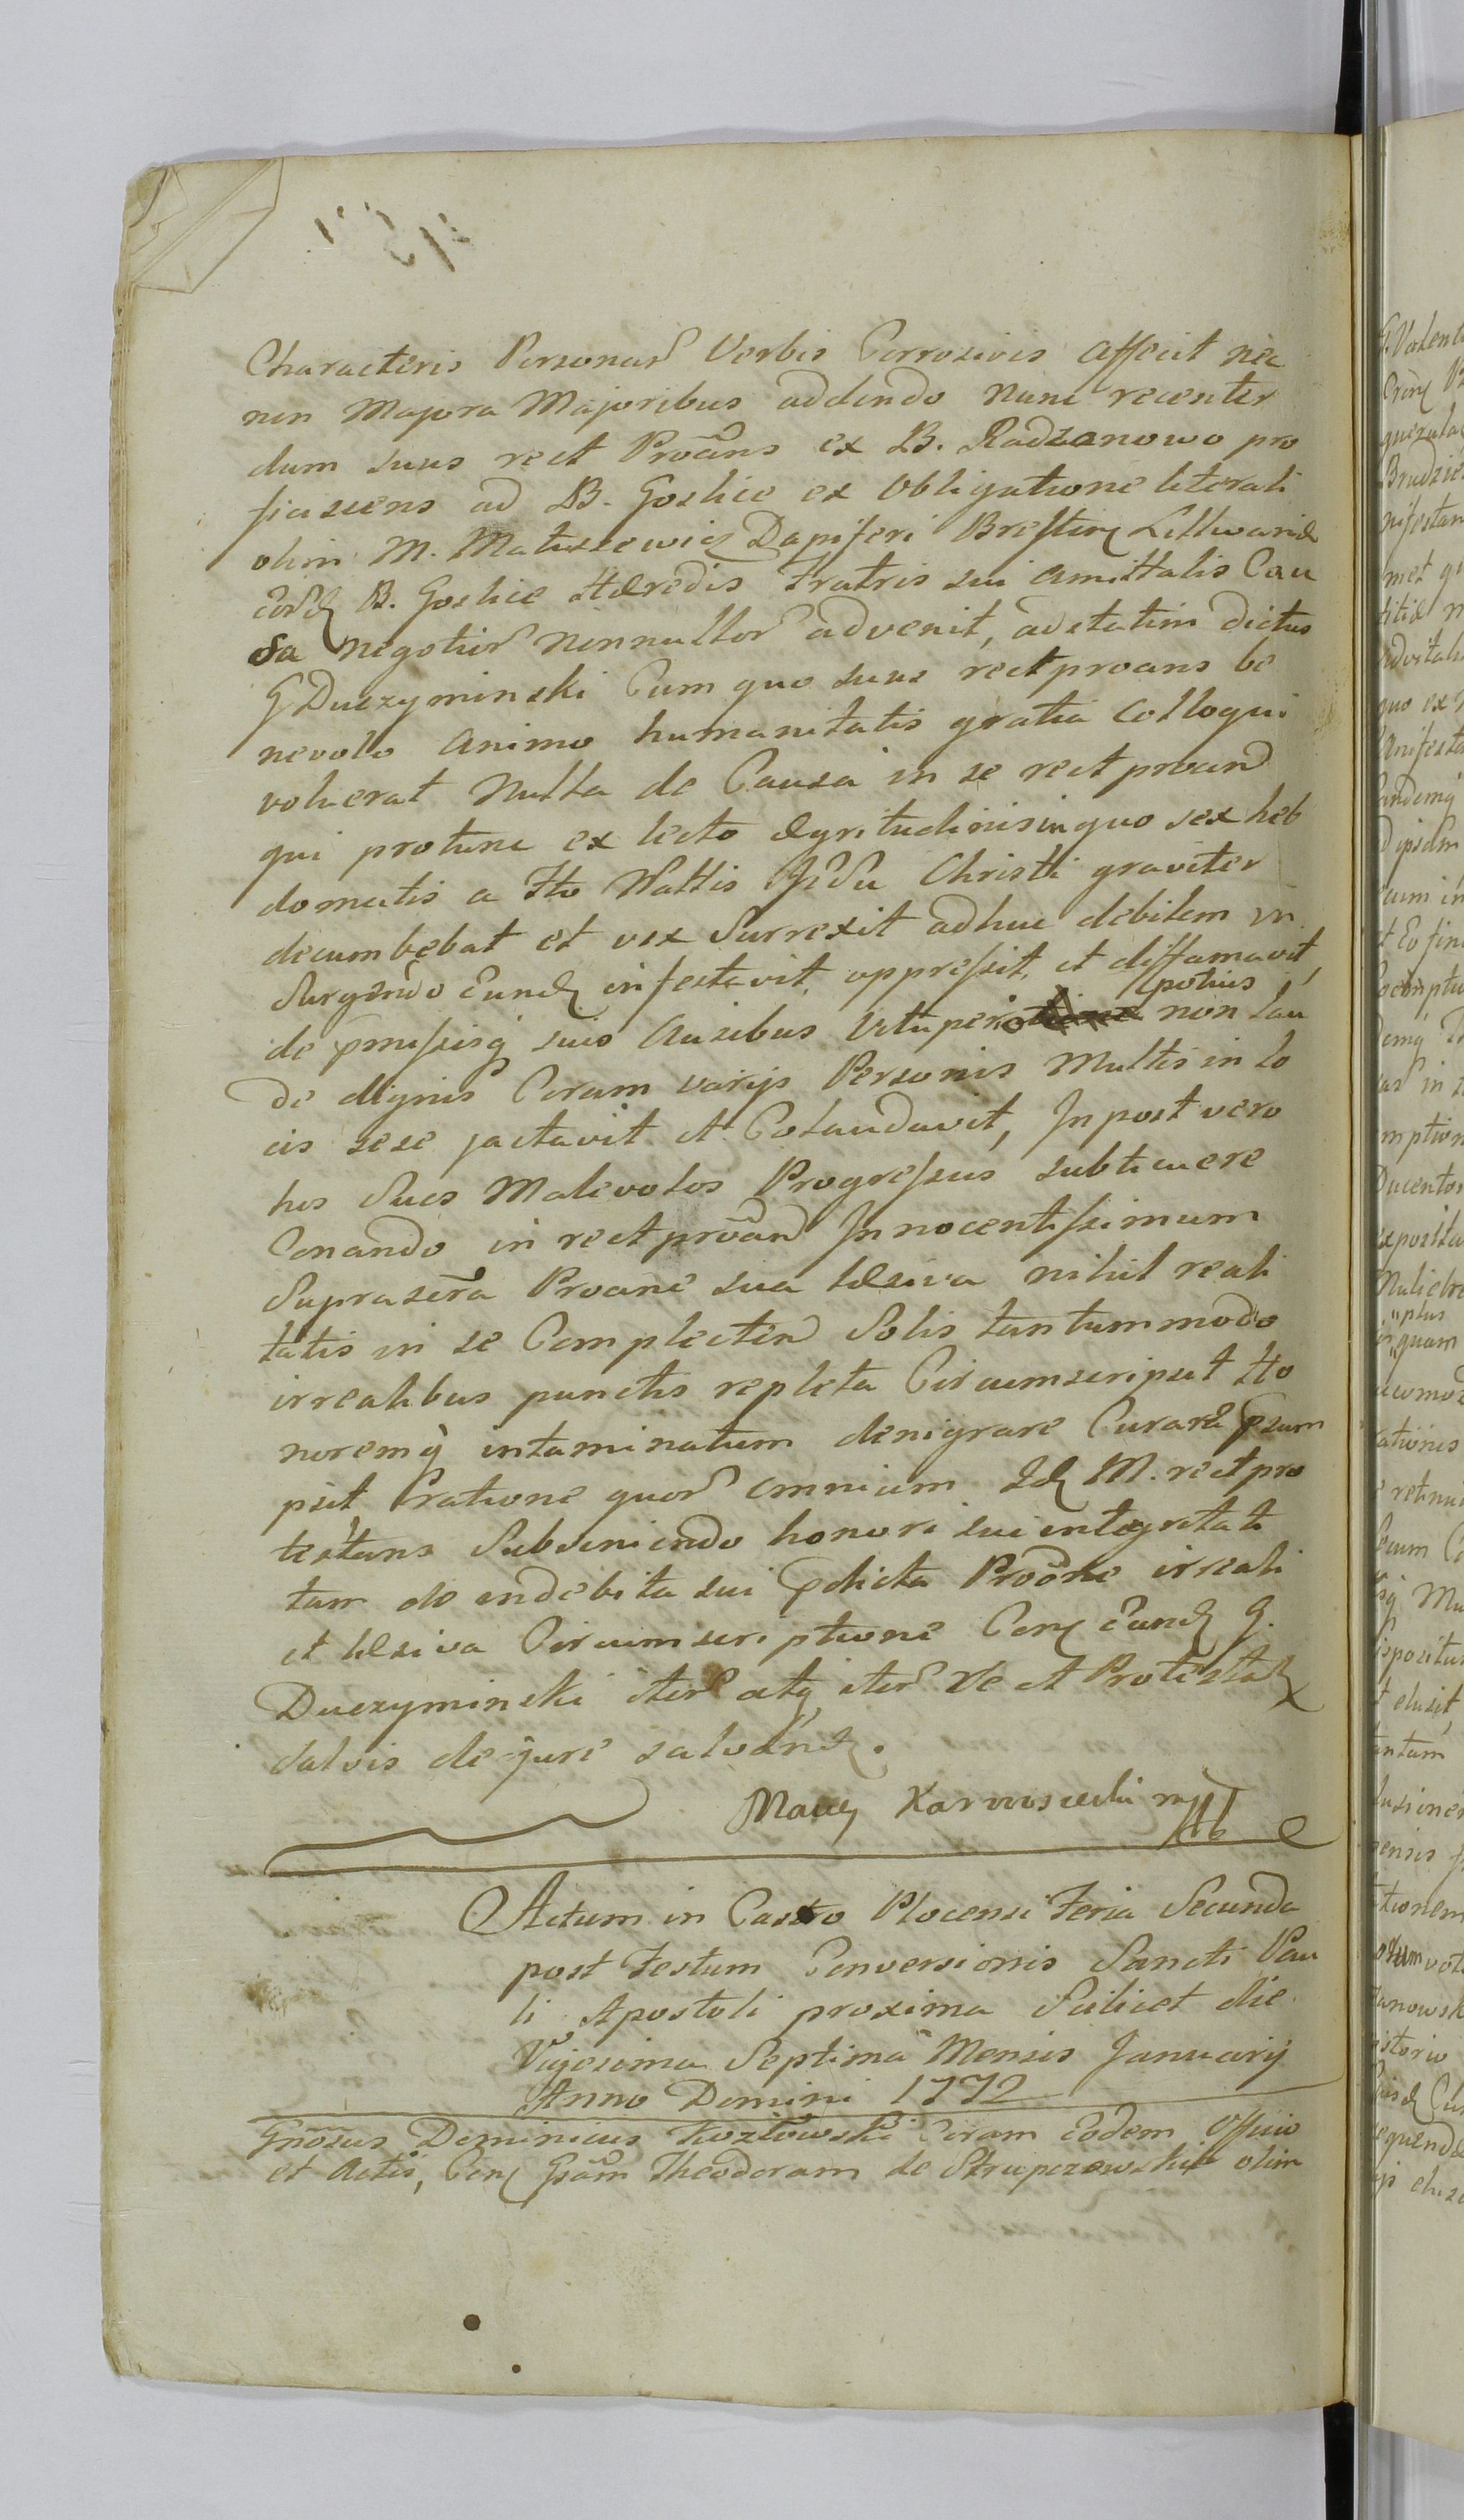 Characteris Personar Verbis Corrosivis affecit nec
non Majora Majoribus addendo nunc recenter
dum suus rect Proãns ex B. Radzanowo pro
ficiscens ad B. Goslice ex Obligatione literali
olim M. Matuszewicz Dapiferi Brestin Littwaniæ
B. Goslice Hæredis Fratris sui amittalis Cau
sa negotior nonnullor advenit, adstatim dictus
G Duczyminski Cum quo suus rect proans be
nevolo animo humanitatis gratia colloqui
voluerat Nulla de Causa in se rect proand
qui protunc ex lecto ægritudinis in quo sex heb
domatis a Fto Nattis Jesu Christi graviter
decumbebat et vix surrexit adhuc debilem in
surgendo eund infestavit, oppressit, et diffamavit,
de præmissisq suis Ausibus Vituperio potius non lau
de dignis Coram varijs Personis Multis in lo
cis sese jactavit et Colaudavit, In post vero
hos suos Malevolos Progressus subticuere
Conando in rect proand Innocentissimum
suprascra Proane sua læsiva nihil reali
tatis in se Complecten Solis tantummodo
irrealibus punctis repleta Circumscripsit Ho
noremq intaminatum denigrare Curare præsum
psit ratione quor omnium Id M. rect pro
testans Subveniendo honori sui integritati
tam de indebita sui prædicta Proõne irreali
et læsiva Circumscriptione Con Eund G.
Duczyminski iter atq iter Ve et Protestat
salvis de jure salvand.
Macy Karwosiecki mp
Actum in Castro Plocensi Feria Secunda
post Festum Conversionis Sancti Pau
li Apostoli proxima Scilicet die
Vigesima Septima Mensis Januarij
Anno Domini 1772
Gnosus Dominicus Kozłowski Coram Eodem Officio
et Actis, Con Gsam Theodoram de Strupczewskie olim